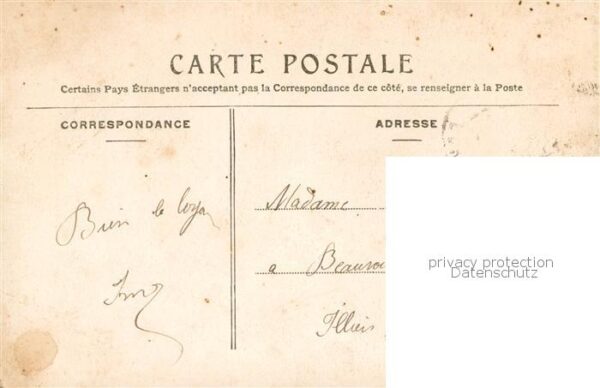 CARTE POSTALE
Certains Pays Étrangers n'acceptent pas la Correspondance de ce côté, se renseigner à la Poste
CORRESPONDANCE
ADRESSE
Bien le
Madame
a
Illiers
privacy protection
Datenschutz